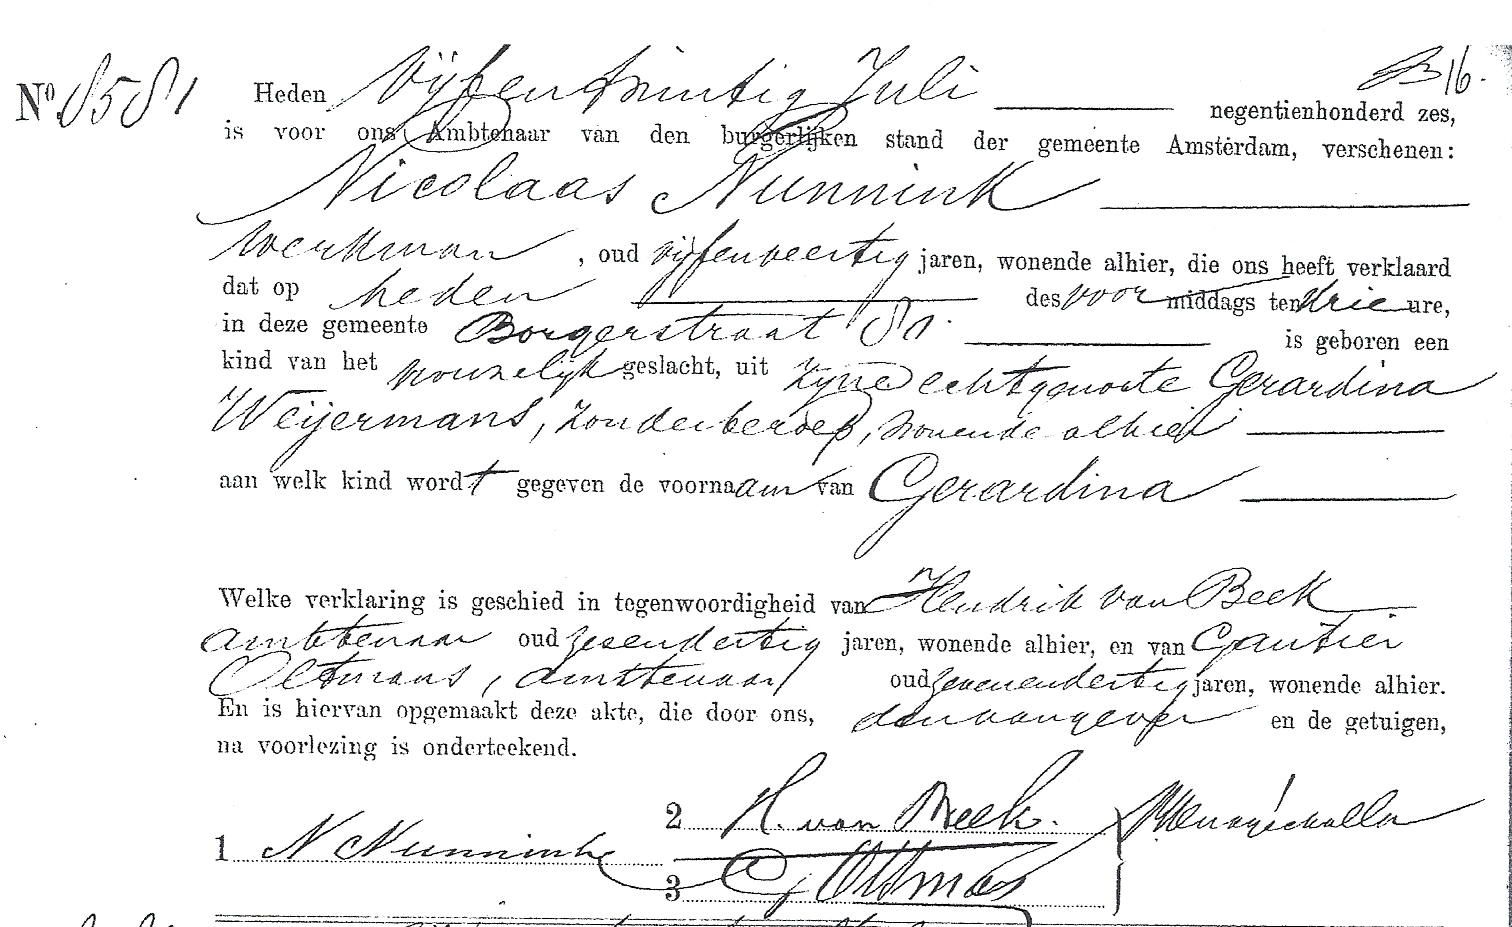 B 16.
No. 8581 Heden Vijfentwintig Juli negentienhonderd zes,
is voor ons Ambtenaar van den burgerlijken stand der gemeente Amsterdam, verschenen:
Nicolaas Nunnink
werkman, oud vijfenveertig jaren, wonende alhier, die ons heeft verklaard
dat op heden des voor middags ten drie ure,
in deze gemeente Borgerstraat 81. is geboren een
kind van het vrouwelijk geslacht, uit zijne echtgenoote Gerardina
Weijermans, zonder beroep, wonende alhier
aan welk kind wordt gegeven de voornaam van Gerardina
Welke verklaring is geschied in tegenwoordigheid van Hendrik van Beek
ambtenaar oud zesendertig jaren, wonende alhier, en van Gautier
Oltmans, ambtenaar oud zevenendertig jaren, wonende alhier.
En is hiervan opgemaakt deze akte, die door ons, den aangever en de getuigen,
na voorlezing is onderteekend.
1 N Nunnink
2 H. van Beek.
3 G Oltmans